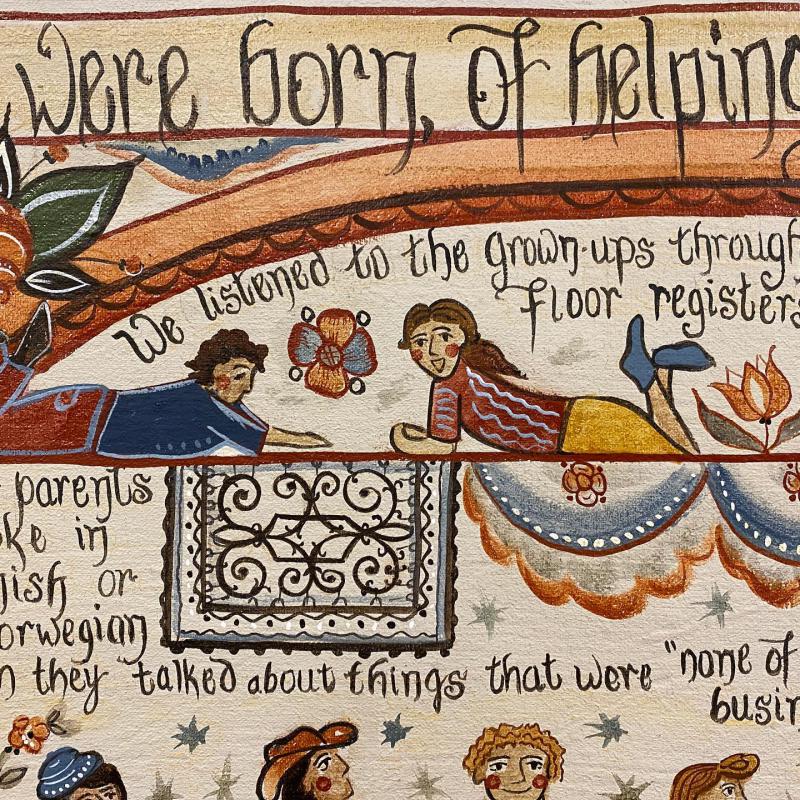 Were born, of helping
We listened to the grown-ups through
floor registers
parents
ke in
nish or
orwegian
n they "talked about things that were "none of
busin